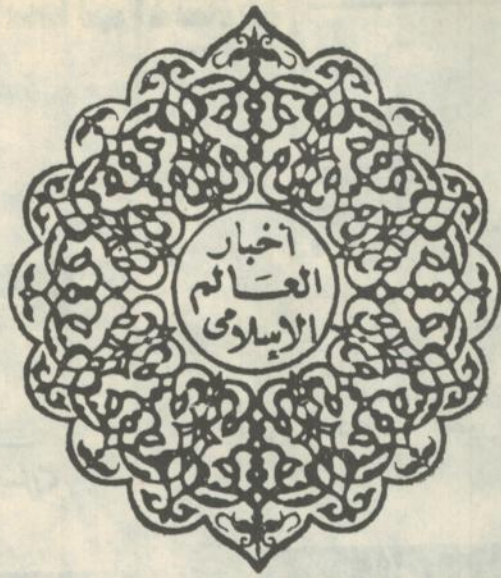 أخبار
العَالم
الإسلامى